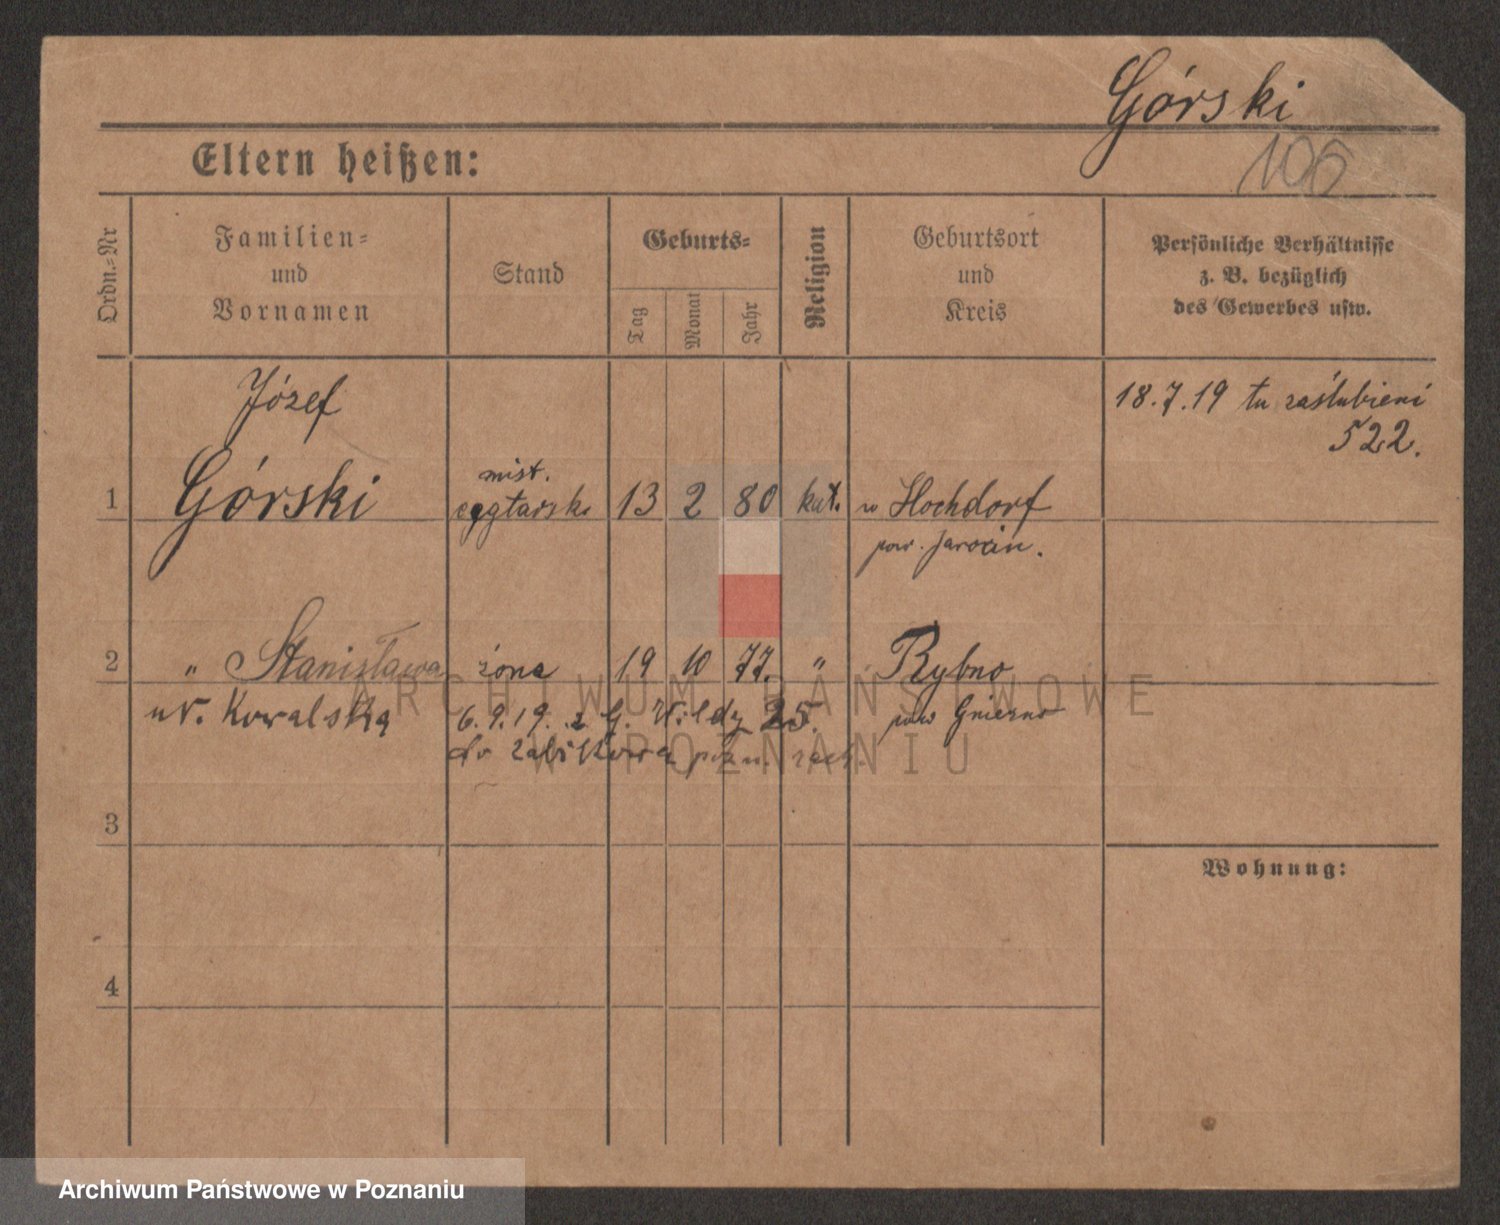 Górski
106
Eltern heißen:
Ordn.=Nr
Familien=
und
Vornamen
Stand
Geburts=
Tag
Monat
Jahr
Religion
Geburtsort
und
Kreis
Persönliche Verhältnisse
z. B. bezüglich
des Gewerbes usw.
Józef
18.7.19 tu zaślubieni
522.
mist.
1 Górski 13 2 80 kat. w Hochdorf
pow. Jarocin.
2 " Stanisława żona 19 10 77. " Rybno
ur. Kowalska 6.9.19. z G. Wildy 25. pow Gniezno
do Żabikowa pozn. zach.
3
Wohnung:
4
ARCHIWUM PAŃSTWOWE
W POZNANIU
Archiwum Państwowe w Poznaniu